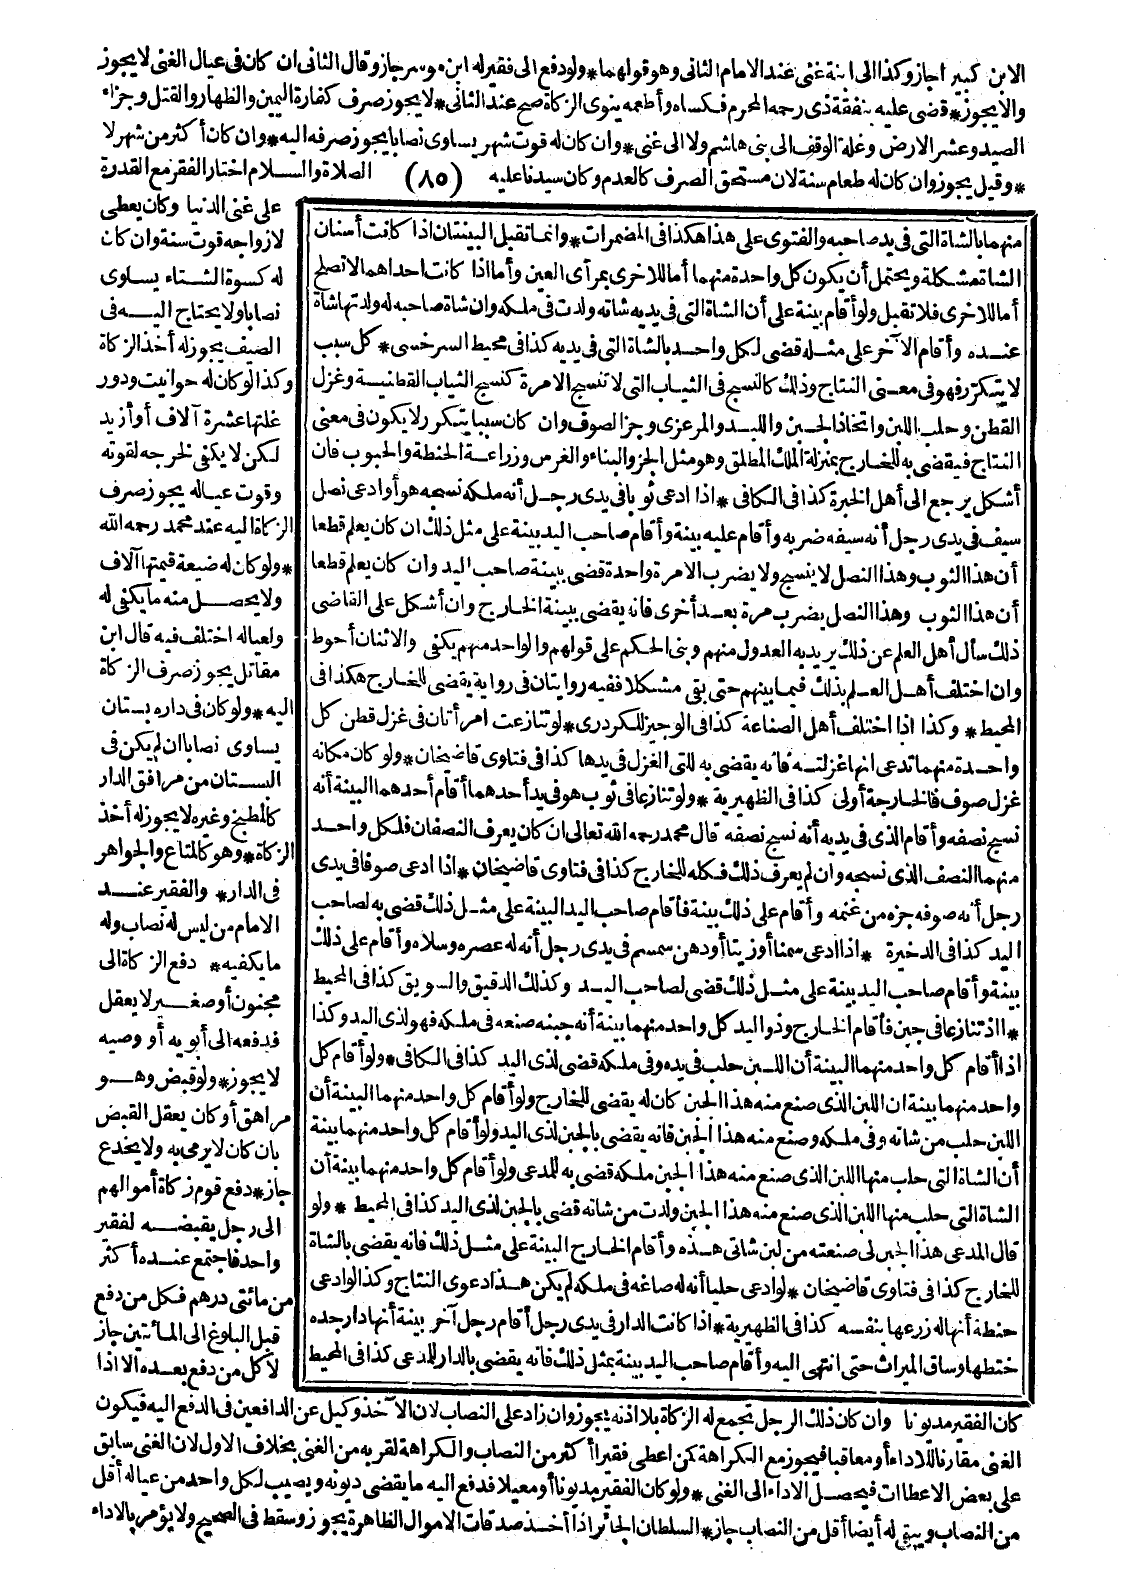 الابن كبير اجاز وكذا الى ابنة غنى عند الامام الثانى وهو قولهما * ولو دفع الى فقير له ابن موسر جاز وقال الثانى ان كان فى عيال الغنى لا يجوز
والا يجوز * قضى عليه بنفقة ذى رحمه المحرم فكساه وأطعمه ينوى الزكاة صح عند الثانى * لا يجوز صرف كفارة اليمين والظهار والقتل وجزاء
الصيد وعشر الارض وغلة الوقف الى بنى هاشم ولا الى غنى * وان كان له قوت شهر يساوى نصابا يجوز صرفه اليه * وان كان أكثر من شهر لا
* وقيل يجوز وان كان له طعام سنة لان مستحق الصرف كالعدم وكان سيدنا عليه (٨٥) الصلاة والسلام اختار الفقر مع القدرة
على غنى الدنيا وكان يعطى
لازواجه قوت سنة وان كان
له كسوة الشتاء يساوى
نصابا ولا يحتاج اليه فى
الصيف يجوز له أخذ الزكاة
وكذا لو كان له حوانيت ودور
غلتها عشرة آلاف أو أزيد
لكن لا يكفى لخرجه لقوته
وقوت عياله يجوز صرف
الزكاة اليه عند محمد رحمه الله
* ولو كان له ضيعة قيمتها آلاف
ولا يحصل منه ما يكفى له
ولعياله اختلف فيه قال ابن
مقاتل يجوز صرف الزكاة
اليه * ولو كان فى داره بستان
يساوى نصابا ان لم يكن فى
البستان من مرافق الدار
كالمطبخ وغيره لا يجوز له أخذ
الزكاة * وهو كالمتاع والجواهر
فى الدار * والفقير عند
الامام من ليس له نصاب وله
ما يكفيه * دفع الزكاة الى
مجنون أو صغير لا يعقل
فدفعه الى أبويه أو وصيه
لا يجوز * ولو قبض وهو
مراهق أو كان يعقل القبض
بان كان لا يرمى به ولا يخدع
جاز * دفع قوم زكاة أموالهم
الى رجل يقبضه لفقير
واحد فاجتمع عنده أكثر
من مائتى درهم فكل من دفع
قبل البلوغ الى المأتين جاز
لا كل من دفع بعده الا اذا
منهما بالشاة التى فى يد صاحبه والفتوى على هذا هكذا فى المضمرات * وانما تقبل البينتان اذا كانت أسنان
الشاة مشكلة ويحتمل أن يكون كل واحدة منهما أما للاخرى بمرآى العين وأما اذا كانت احداهما لا تصلح
أما للاخرى فلا تقبل ولو أقام بينة على أن الشاة التى فى يديه شاته ولدت فى ملكه وان شاة صاحبه له ولدتها شاة
عنده وأقام الآخر على مثله قضى لكل واحد بالشاة التى فى يديه كذا فى محيط السرخسى * كل سبب
لا يتكرر فهو فى معنى النتاج وذلك كالنسج فى الثياب التى لا تنسج الا مرة كنسج الثياب القطنية وغزل
القطن وحلب اللبن واتخاذ الجبن واللبد والمرعزى وجز الصوف وان كان سببا يتكرر لا يكون فى معنى
النتاج فيقضى به للخارج بمنزلة الملك المطلق وهو مثل الخز والبناء والغرس وزراعة الحنطة والحبوب فان
أشكل يرجع الى أهل الخبرة كذا فى الكافى * اذا ادعى ثوبا فى يدى رجل أنه ملكه نسجه هو أو ادعى نصل
سيف فى يدى رجل أنه سيفه ضربه وأقام عليه بينة وأقام صاحب اليد بينة على مثل ذلك ان كان يعلم قطعا
أن هذا الثوب وهذا النصل لا ينسج ولا يضرب الا مرة واحدة قضى ببينة صاحب اليد وان كان يعلم قطعا
أن هذا الثوب وهذا النصل يضرب مرة بعد أخرى فانه يقضى ببينة الخارج وان أشكل على القاضى
ذلك سأل أهل العلم عن ذلك يريد به العدول منهم وبنى الحكم على قولهم والواحد منهم يكفى والاثنان أحوط
وان اختلف أهل العلم بذلك فيما بينهم حتى بقى مشكلا ففيه روايتان فى رواية يقضى للخارج هكذا فى
المحيط * وكذا اذا اختلف أهل الصناعة كذا فى الوجيز للكردرى * لو تنازعت امرأتان فى غزل قطن كل
واحدة منهما تدعى انها غزلته فانه يقضى به للتى الغزل فى يدها كذا فى فتاوى قاضيخان * ولو كان مكانه
غزل صوف فالخارجة أولى كذا فى الظهيرية * ولو تنازعا فى ثوب هو فى يد أحدهما أقام أحدهما البينة أنه
نسج نصفه وأقام الذى فى يديه أنه نسج نصفه قال محمد رحمه الله تعالى ان كان يعرف النصفان فلكل واحد
منهما النصف الذى نسجه وان لم يعرف ذلك فكله للخارج كذا فى فتاوى قاضيخان * اذا ادعى صوفا فى يدى
رجل أنه صوفه جزه من غنمه وأقام على ذلك بينة فأقام صاحب اليد البينة على مثل ذلك قضى به لصاحب
اليد كذا فى الذخيرة * اذا ادعى سمنا أو زيتا أو دهن سمسم فى يدى رجل أنه له عصره وسلاه وأقام على ذلك
بينة وأقام صاحب اليد بينة على مثل ذلك قضى لصاحب اليد وكذلك الدقيق والسويق كذا فى المحيط
* اذا تنازعا فى جبن فأقام الخارج وذو اليد كل واحد منهما بينة أنه جبنه صنعه فى ملكه فهو لذى اليد وكذا
اذا أقام كل واحد منهما البينة أن اللبن حلب فى يده وفى ملكه قضى لذى اليد كذا فى الكافى * ولو أقام كل
واحد منهما بينة ان اللبن الذى صنع منه هذا الجبن كان له يقضى للخارج ولو أقام كل واحد منهما البينة أن
اللبن حلب من شاته وفى ملكه وصنع منه هذا الجبن فانه يقضى بالجبن لذى اليد ولو أقام كل واحد منهما بينة
أن الشاة التى حلب منها اللبن الذى صنع منه هذا الجبن ملكه قضى به للمدعى ولو أقام كل واحد منهما بينة أن
الشاة التى حلب منها اللبن الذى صنع منه هذا الجبن ولدت من شاته قضى بالجبن لذى اليد كذا فى المحيط * ولو
قال المدعى هذا الجبن لى صنعته من لبن شاتى هذه وأقام الخارج البينة على مثل ذلك فانه يقضى بالشاة
للخارج كذا فى فتاوى قاضيخان * لو ادعى حليا أنه له صاغه فى ملكه لم يكن هذا دعوى النتاج وكذا لو ادعى
حنطة أنها له زرعها بنفسه كذا فى الظهيرية * اذا كانت الدار فى يدى رجل أقام رجل آخر بينة أنها دار جده
ختطها وساق الميراث حتى انتهى اليه وأقام صاحب اليد بينة بمثل ذلك فانه يقضى بالدار للمدعى كذا فى المحيط
كان الفقير مديونا وان كان ذلك الرجل تجمع له الزكاة بلا اذنه يجوز وان زاد على النصاب لان الآخذ وكيل عن الدافعين فى الدفع اليه فيكون
الغنى مقارنا للاداء أو معاقبا فيجوز مع الكراهة كمن اعطى فقيرا أكثر من النصاب والكراهة لقربه من الغنى بخلاف الاول لان الغنى سابق
على بعض الاعطاآت فيحصل الاداء الى الغنى * ولو كان الفقير مديونا أو معيلا فدفع اليه ما يقضى ديونه ويصيب لكل واحد من عياله أقل
من النصاب ويبقى له أيضا أقل من النصاب جاز * السلطان الجائر اذا أخذ صدقات الاموال الظاهرة يجوز وسقط فى الصحيح ولا يؤمر بالاداء